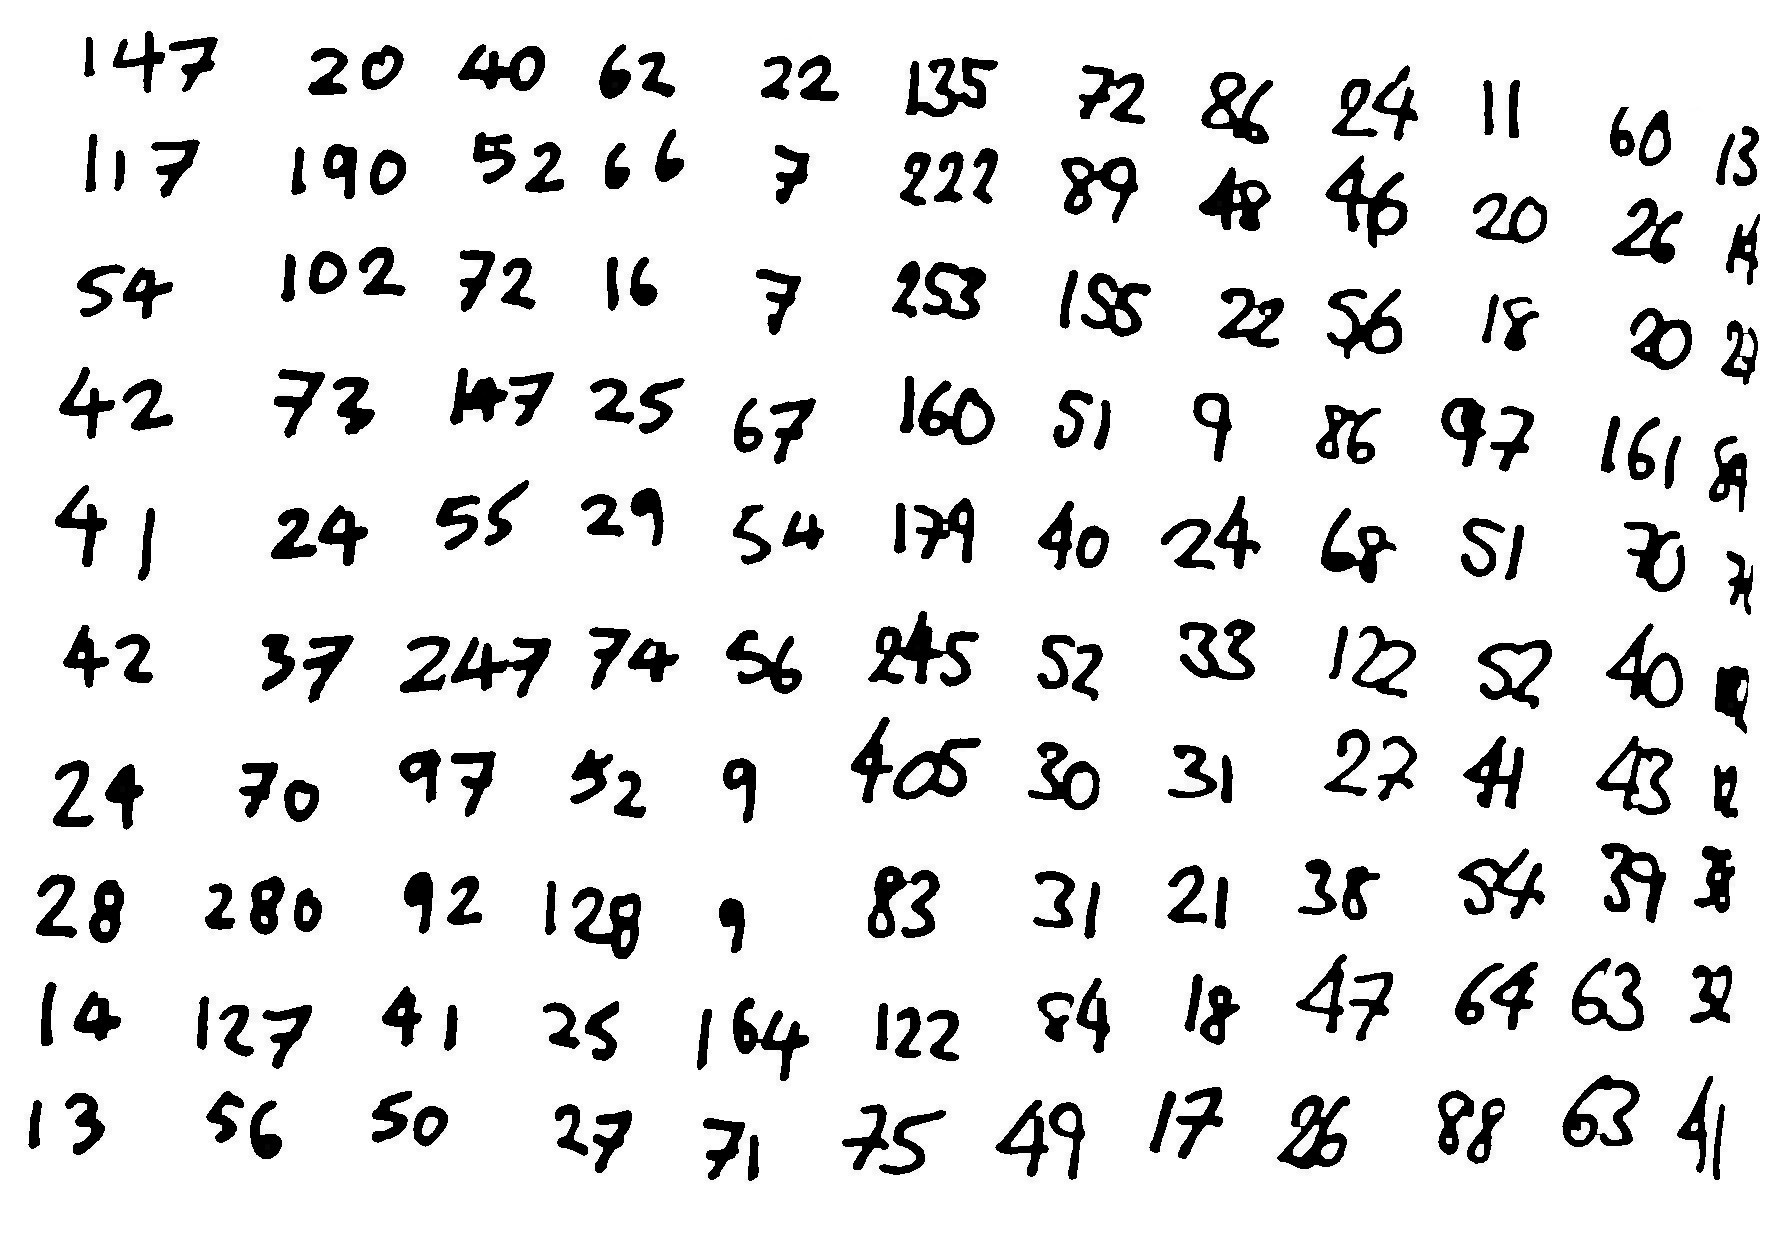 147 20 40 62 22 135 72 86 24 11 60 13
117 190 52 66 7 222 89 48 46 20 26 14
54 102 72 16 7 253 155 22 56 18 20 27
42 73 147 25 67 160 51 9 86 97 161 89
41 24 55 29 54 179 40 24 68 51 70 71
42 37 247 74 56 245 52 33 122 52 40
24 70 97 52 9 405 30 31 27 41 43 12
28 280 92 128 9 83 31 21 38 54 39 38
14 127 41 25 164 122 84 18 47 64 63 32
13 56 50 27 71 75 49 17 26 88 63 41